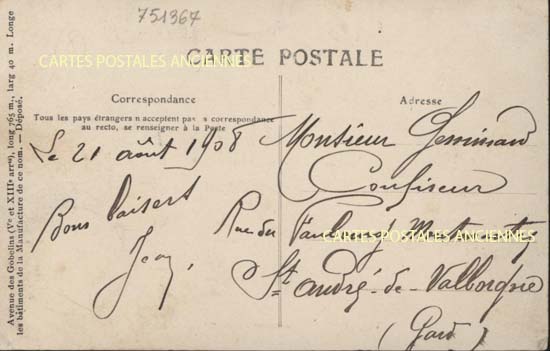 751367
CARTE POSTALE
CARTES POSTALES ANCIENNES
Correspondance
Tous les pays étrangers n acceptent pas correspondance
au recto, se renseigner à la Poste
Le 21 août 1908
Bons Baisers
Jean
Adresse
Monsieur
Confiseur
Rue du
CARTES POSTALES ANCIENNES
St André-de-Valborgne
(Gard)
Avenue des Gobelins (Ve et XIIIe arrts), long 765 m., larg 40 m. Longe
les bâtiments de la Manufacture de ce nom. — Déposé.